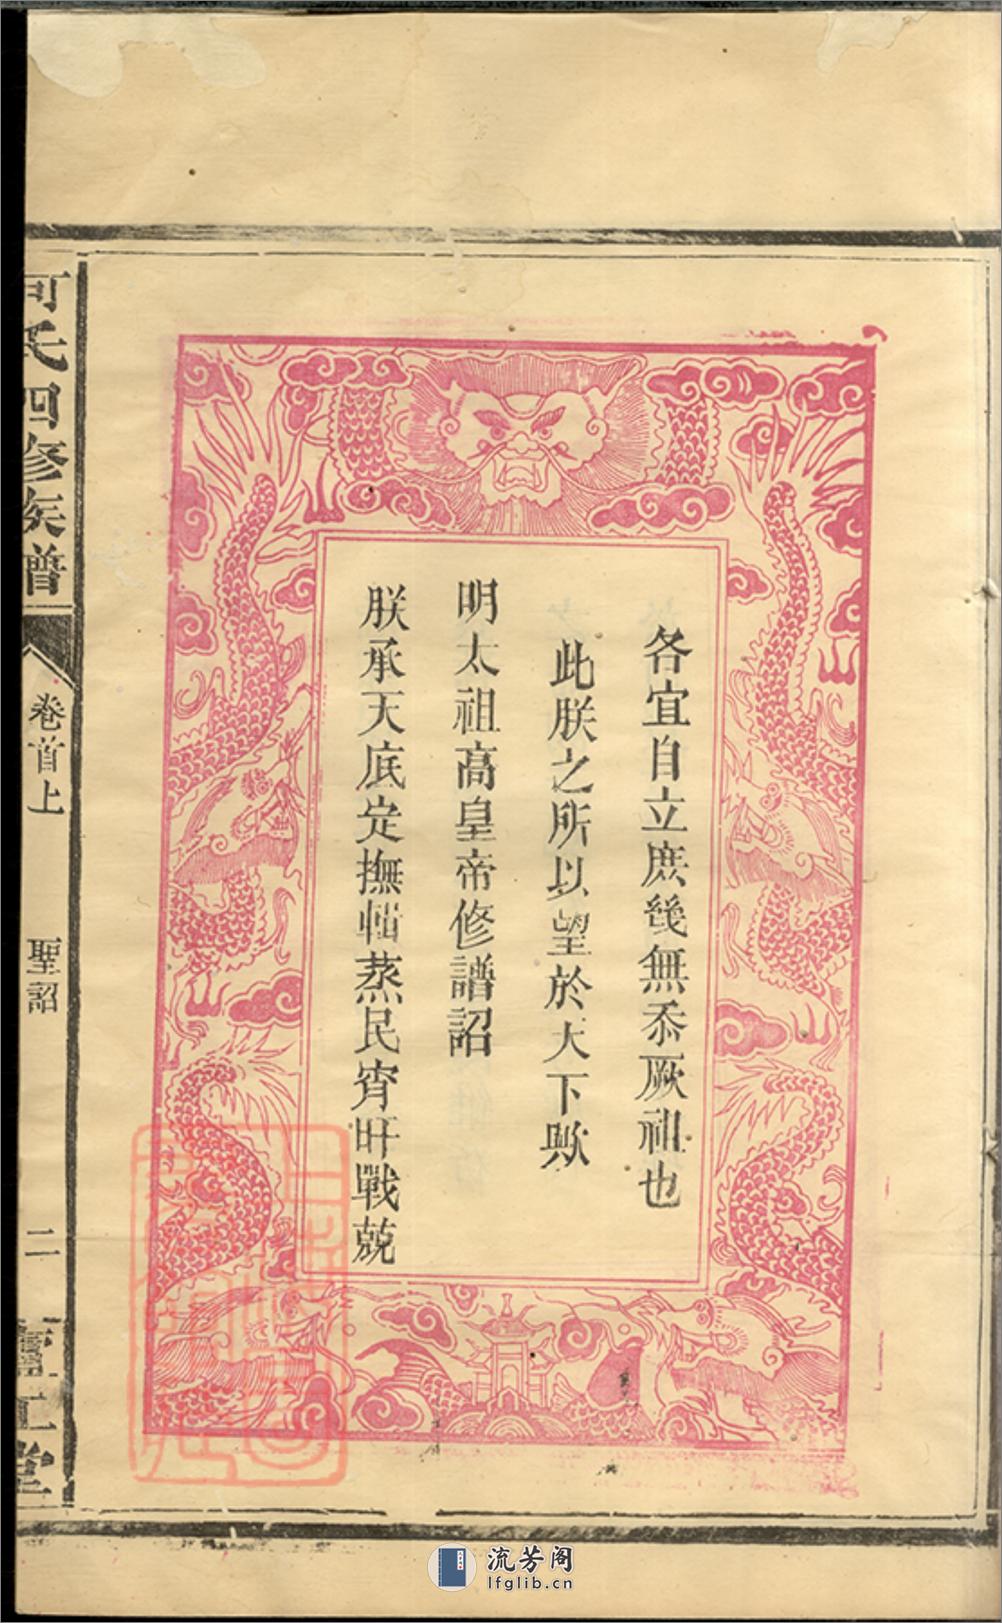 各宜自立庶幾無忝厥祖也
此朕之所以望於天下歟
明太祖高皇帝修譜詔
朕承天底定撫帖蒸民宵旰戰兢
何氏四修族譜
卷首上
聖詔
二
流芳阁
lfglib.cn